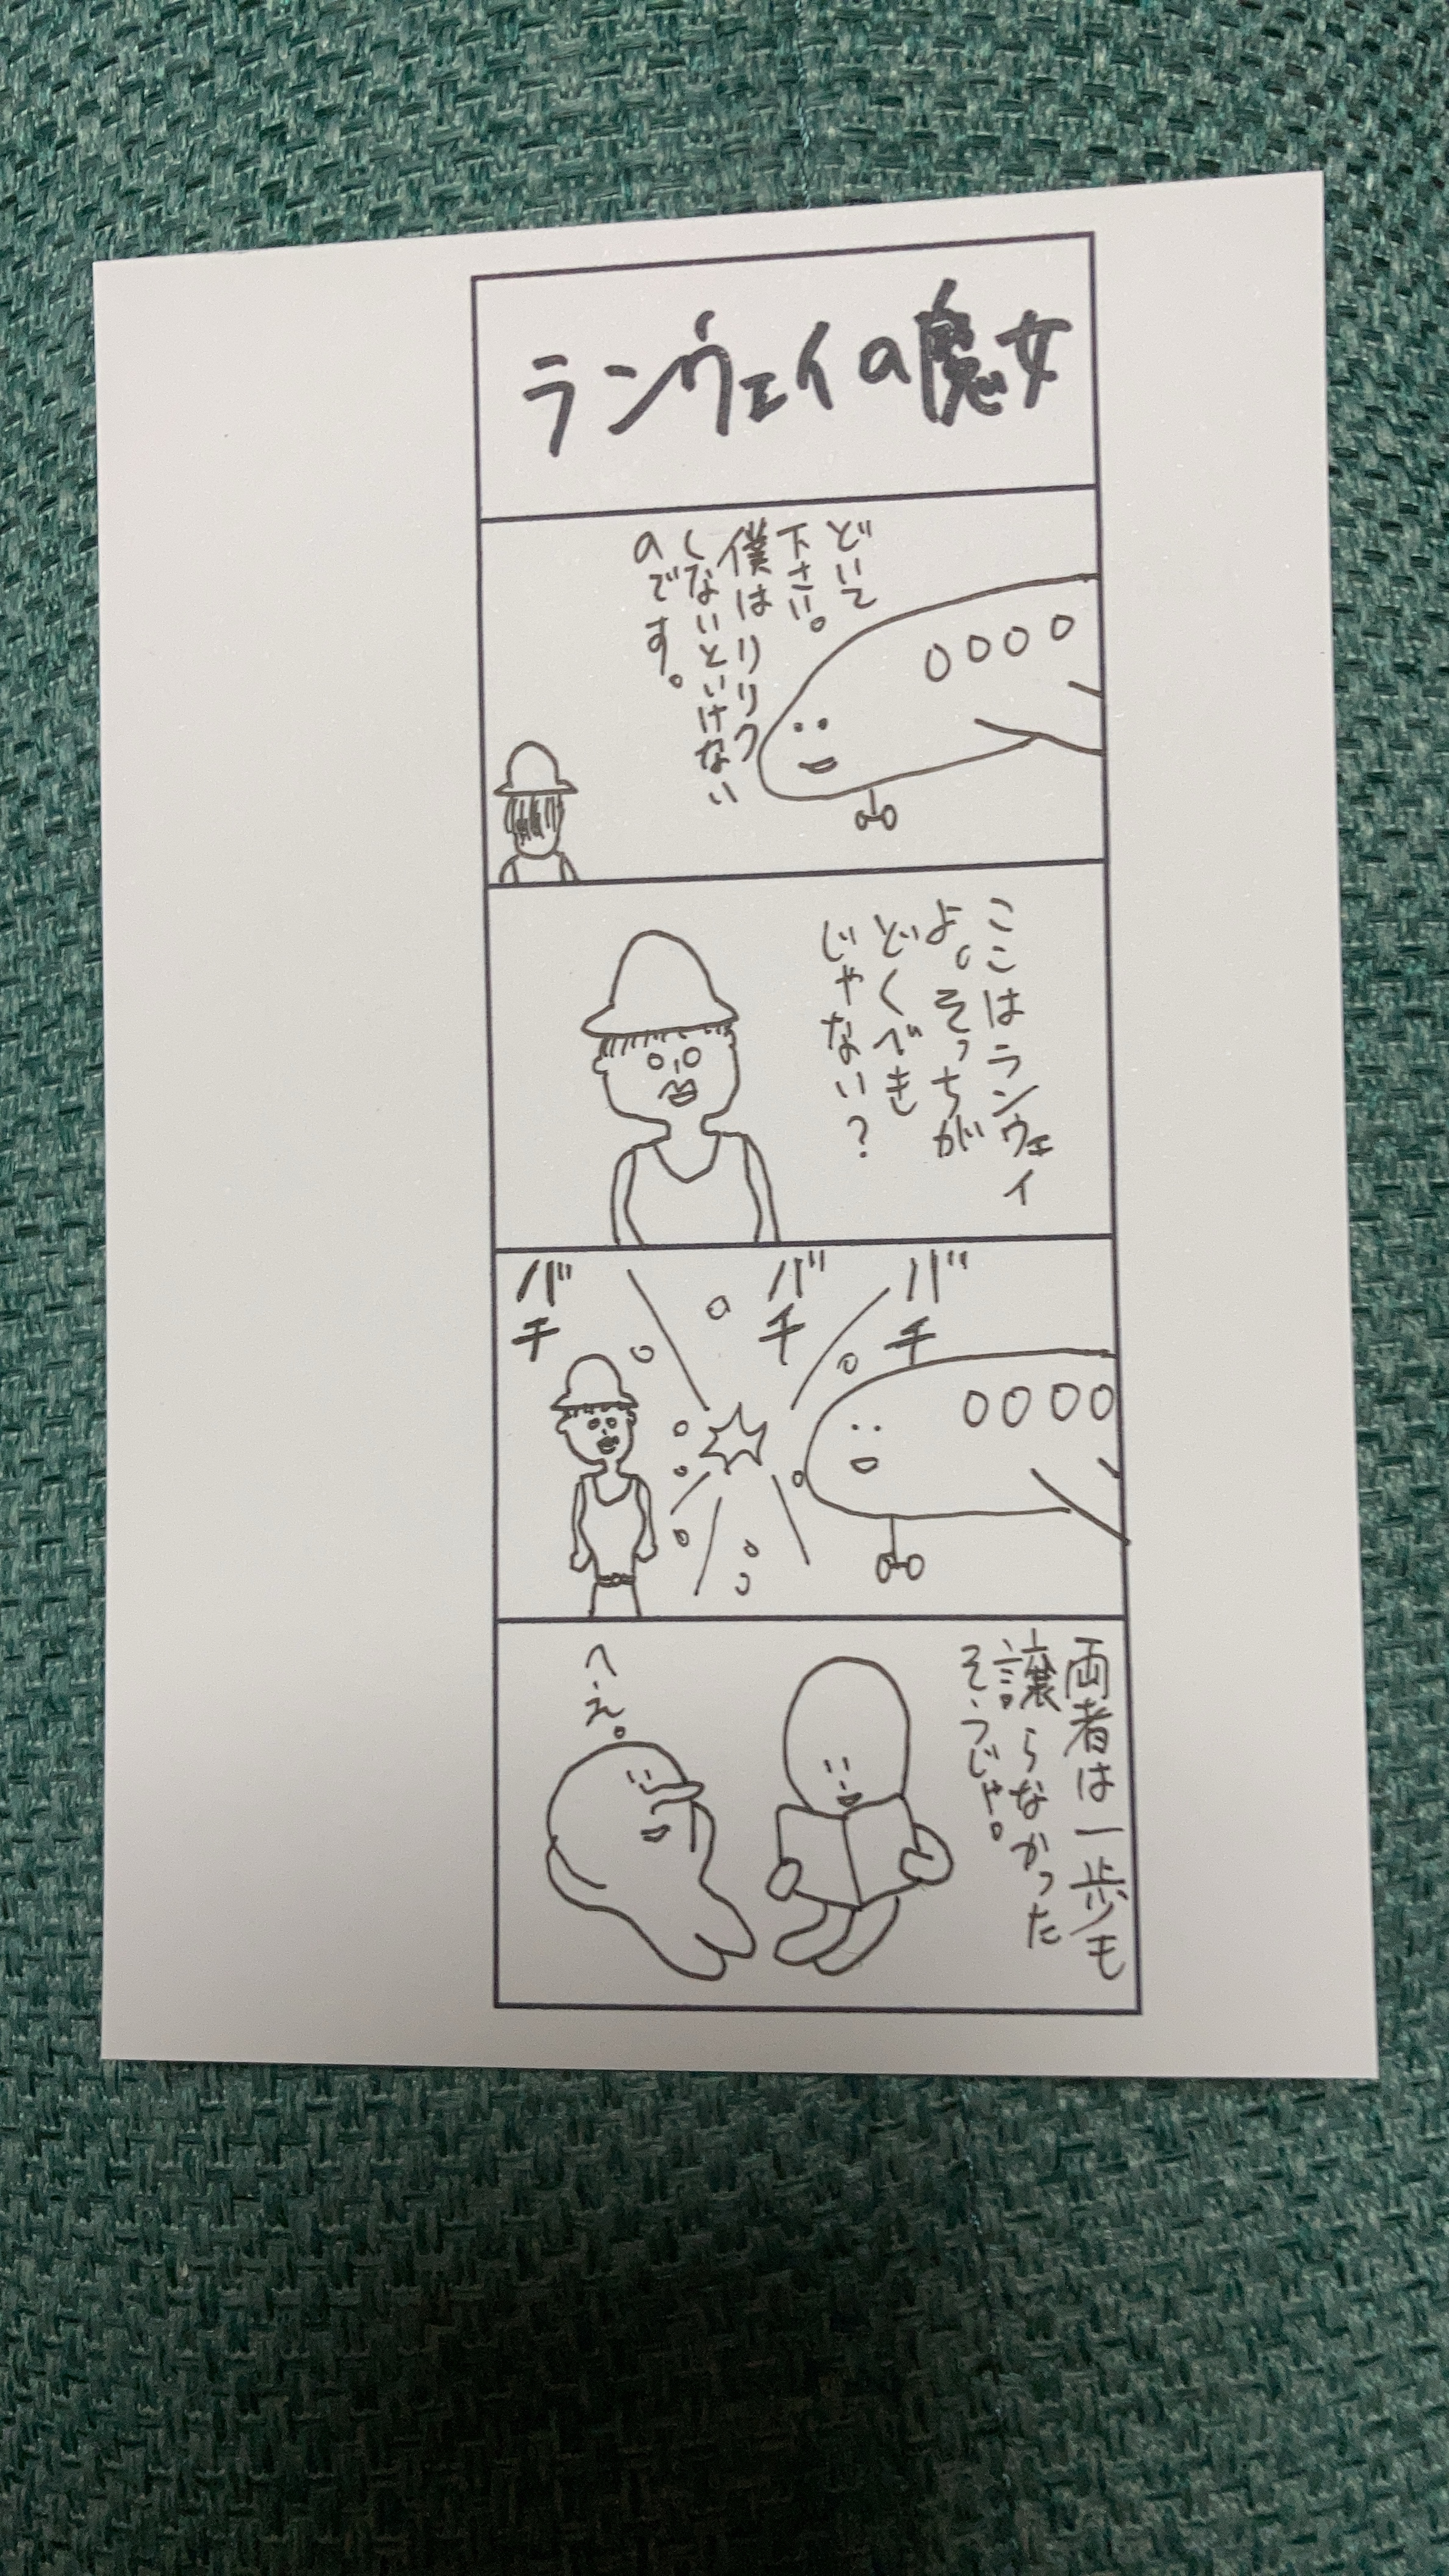 ランウェイの魔女
どいて
下さい。
僕はリリク
しないといけない
のです。
ここはランウェイ
よ。そっちが
どくべき
じゃない？
バチ
バチ
バチ
両者は一歩も
譲らなかった
そうじゃ。
へえ。